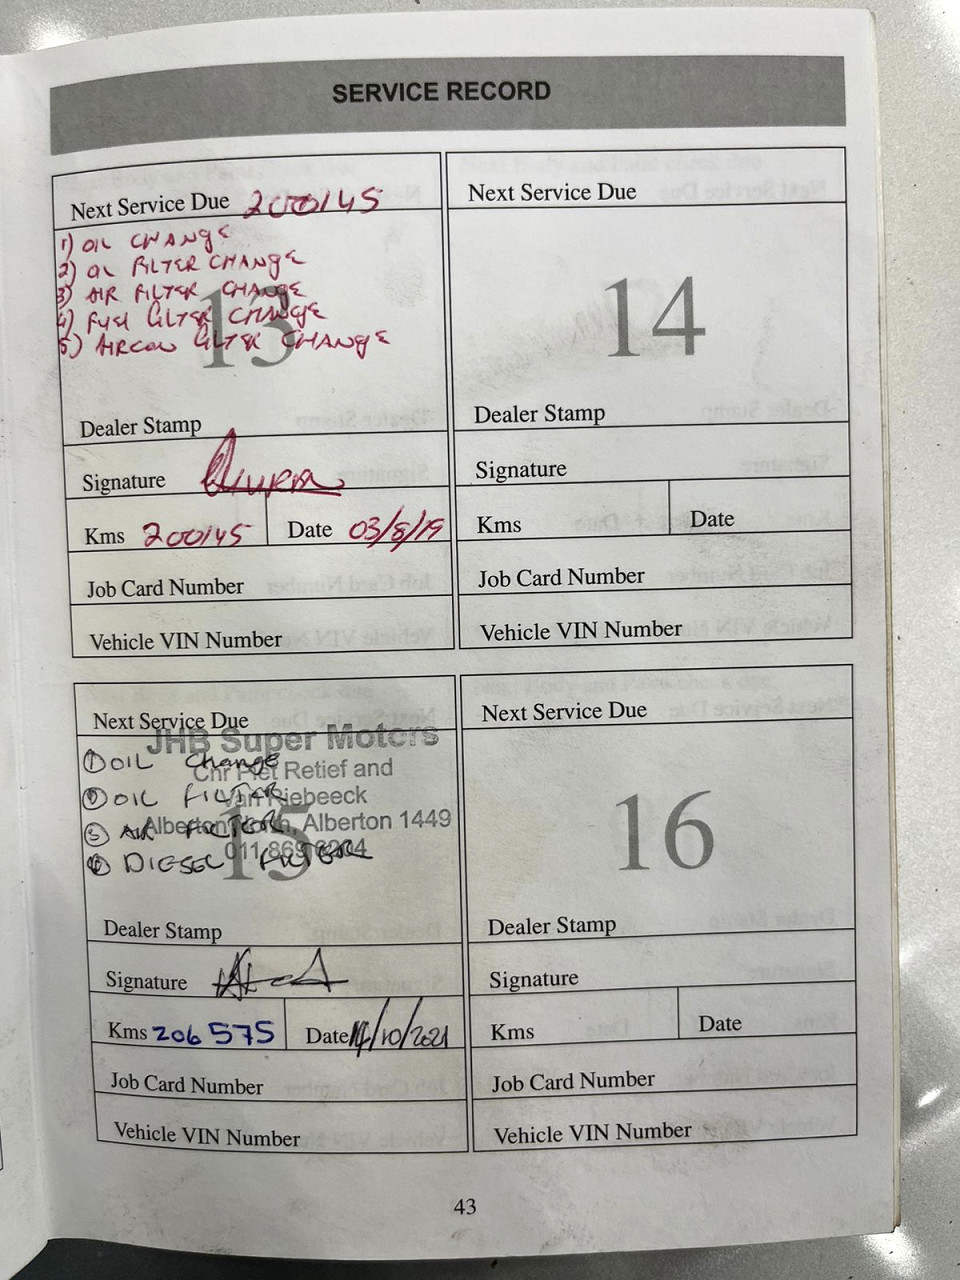 SERVICE RECORD
Next Service Due 200145
1) OIL CHANGE
2) OIL FILTER CHANGE
3) AIR FILTER CHANGE
4) FUEL FILTER CHANGE
5) AIRCON FILTER CHANGE
13
Dealer Stamp
Signature
Kms 200145 Date 03/8/19
Job Card Number
Vehicle VIN Number
Next Service Due
14
Dealer Stamp
Signature
Kms Date
Job Card Number
Vehicle VIN Number
Next Service Due
JHB Super Motors
Cnr Piet Retief and
Van Riebeeck
Alberton North, Alberton 1449
011 869
① OIL Change
② OIL FILTER
③ AIR FILTER
④ DIESEL FILTER
15
Dealer Stamp
Signature
Kms 206575 Date 14/10/2021
Job Card Number
Vehicle VIN Number
Next Service Due
16
Dealer Stamp
Signature
Kms Date
Job Card Number
Vehicle VIN Number
43